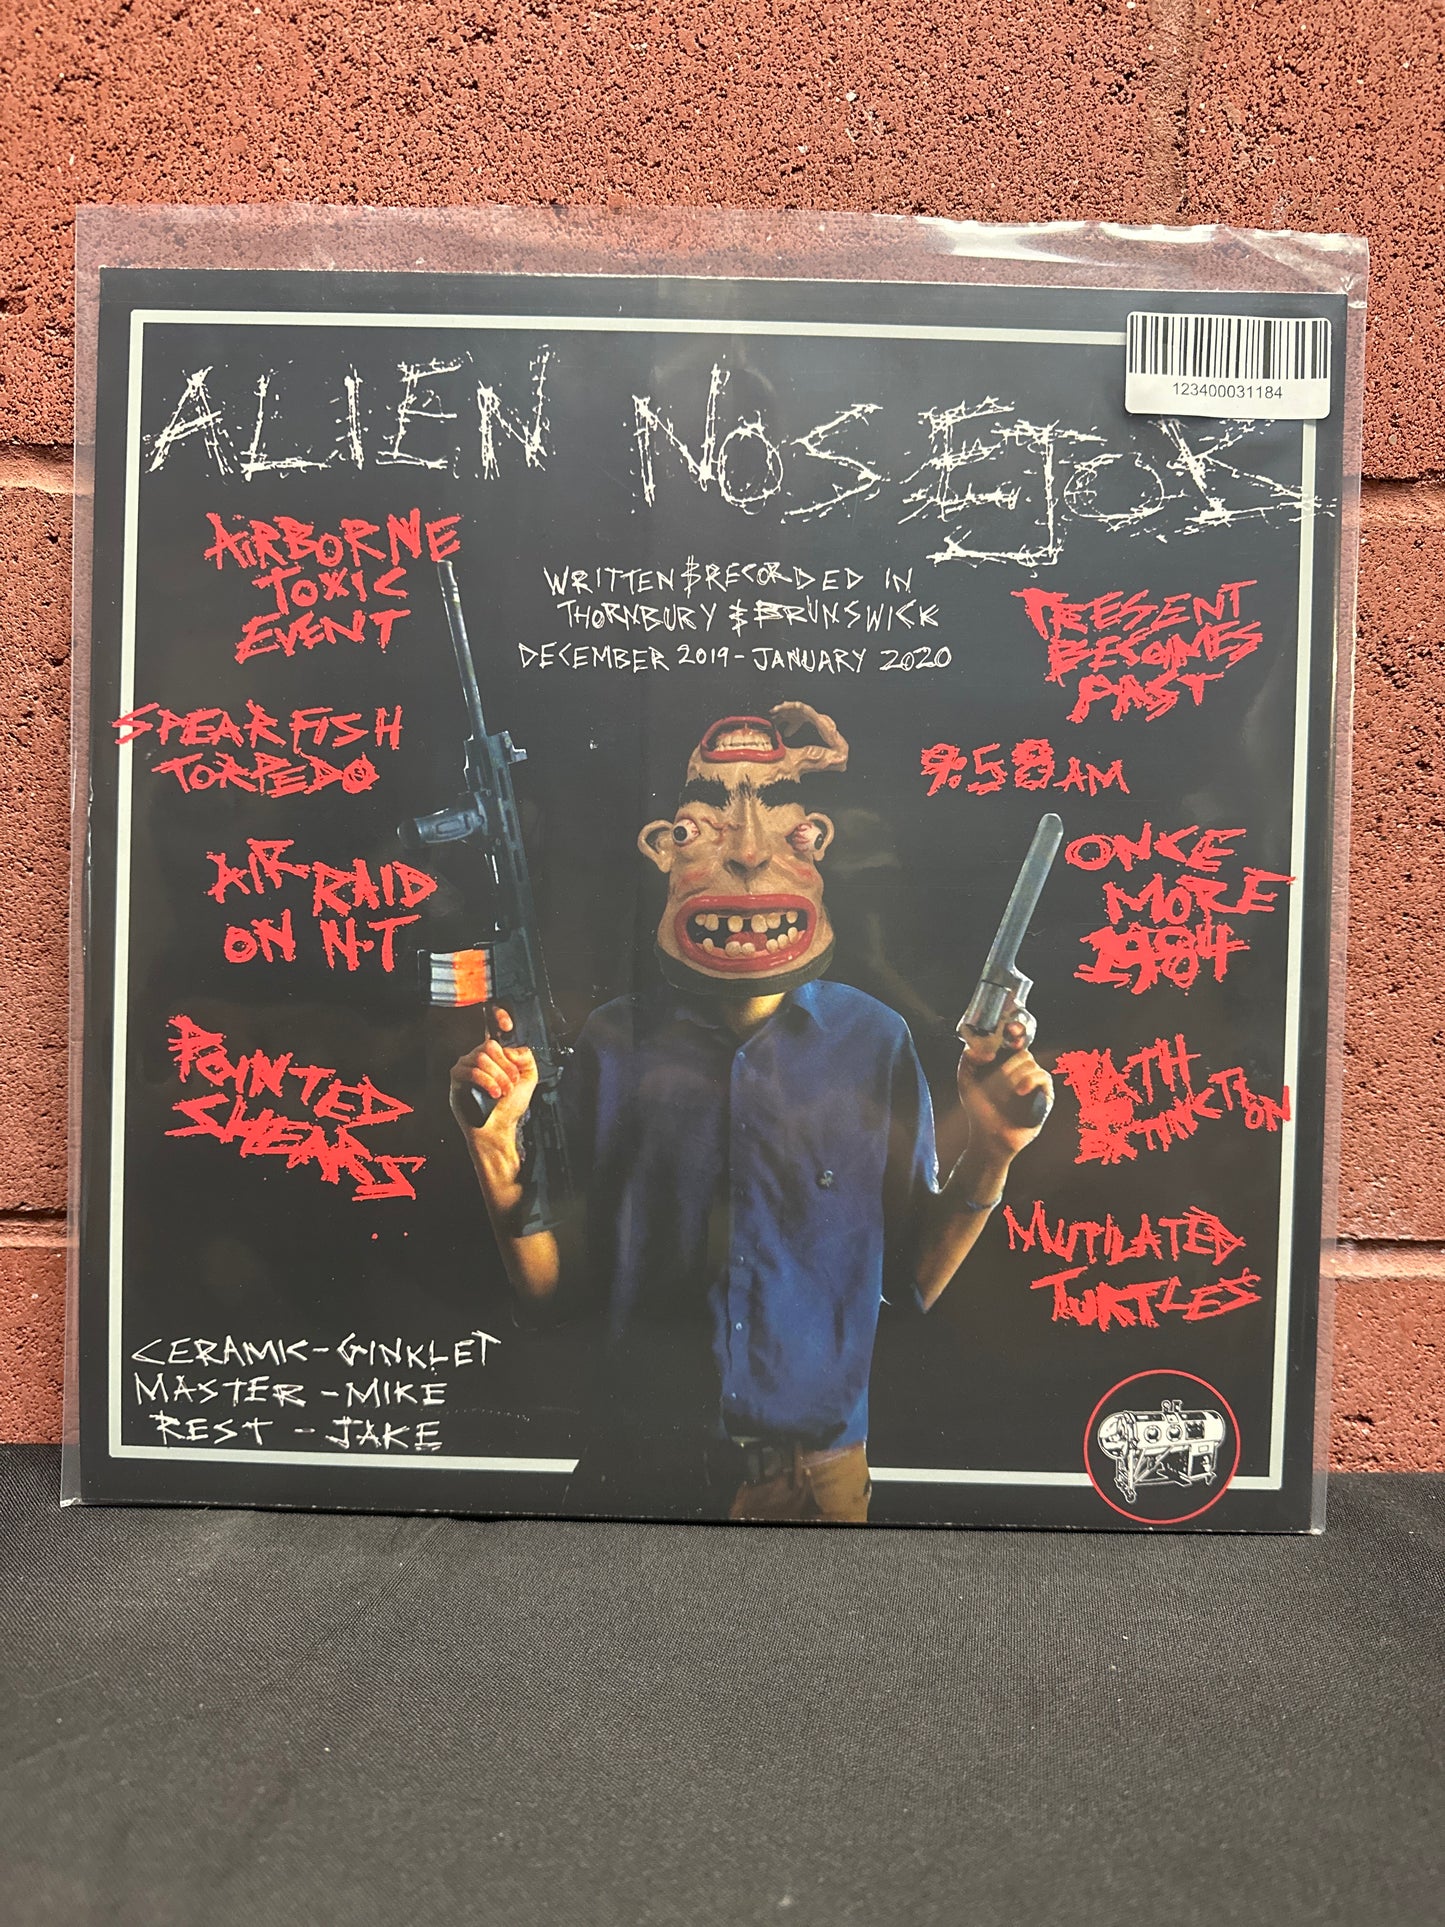 123400031184
ALIEN NOSEJOB
WRITTEN & RECORDED IN
THORNBURY & BRUNSWICK
DECEMBER 2019 - JANUARY 2020
AIRBORNE
TOXIC
EVENT
SPEARFISH
TORPEDO
AIR RAID
ON N.T
POINTED
SHEARS
PRESENT
BECOMES
PAST
9:58 AM
ONCE
MORE
1984
EXTINCTION
MUTILATED
TURTLES
CERAMIC - GINKLET
MASTER - MIKE
REST - JAKE